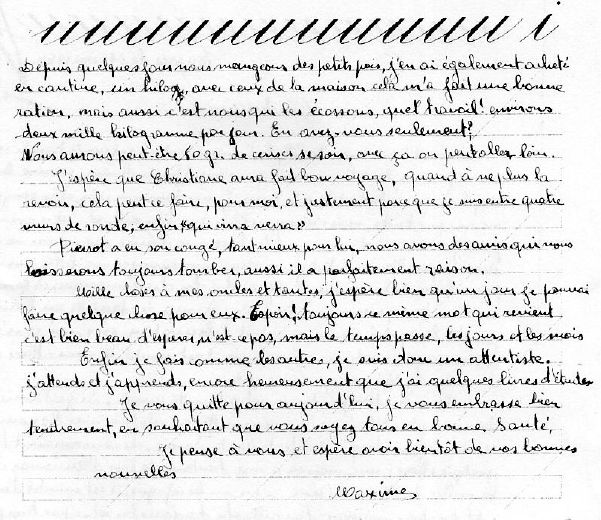 Depuis quelques jours nous mangeons des petits pois, j'en ai également acheté
en cantine, un kilog, avec ceux de la maison cela m'a fait une bonne
ration, mais aussi c'est nous qui les écossons, quel travail! environs
deux mille kilogramme par jour. En avez-vous seulement?
Nous aurons peut-être 60 gr. de cerises ce soir, avec ça on peut aller loin.
J'espère que Christiane aura fait bon voyage, quand à ne plus la
revoir, cela peut ce faire, pour moi, et justement parce que je suis entre quatre
murs de ronde, enfin "qui vivra verra"
Pierrot a eu son congé, tant mieux pour lui, nous avons des amis qui nous
laisserons toujours tomber, aussi il a parfaitement raison.
Mille choses à mes oncles et tantes, j'espère bien qu'un jour je pourrai
faire quelque chose pour eux. Espoir! toujours ce même mot qui revient
c'est bien beau d'espérer n'est-ce pas, mais le temps passe, les jours et les mois
Enfin je fais comme les autres, je suis donc un attentiste.
j'attends et j'apprends, encore heureusement que j'ai quelques livres d'Etudes
Je vous quitte pour aujourd'hui, je vous embrasse bien
tendrement, en souhaitant que vous soyez tous en bonne santé,
Je pense à vous et espère avoir bientôt de vos bonnes
nouvelles
Maxime